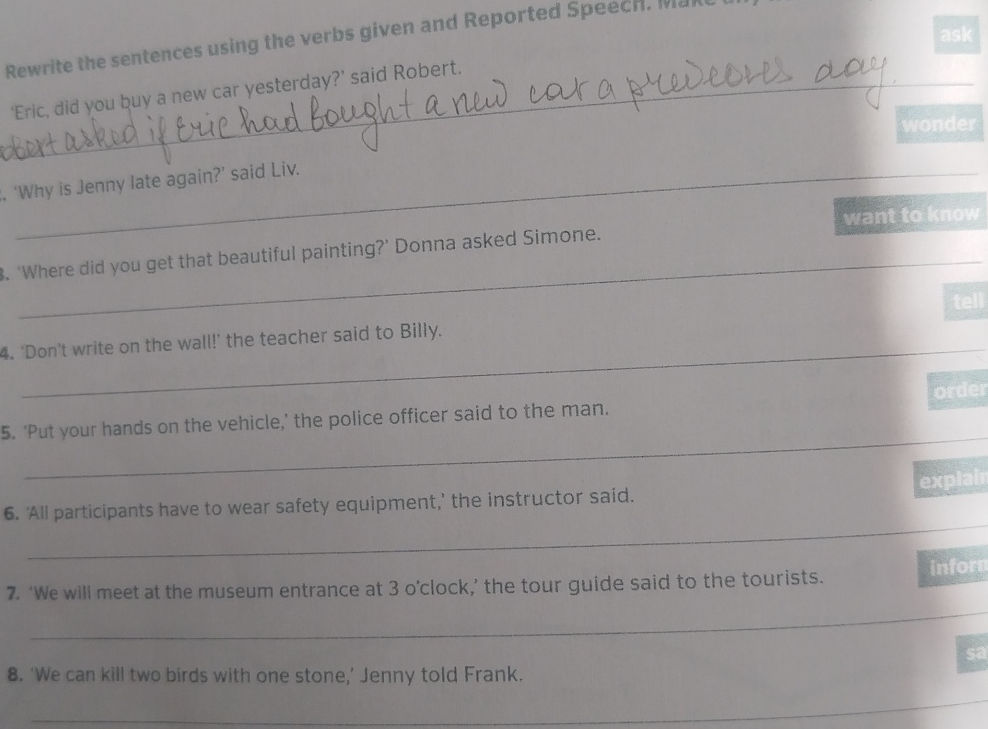 Rewrite the sentences using the verbs given and Reported Speech.
ask
'Eric, did you buy a new car yesterday?' said Robert.
asked if Eric had bought a new car a day.
wonder
'Why is Jenny late again?' said Liv.
want to know
3. 'Where did you get that beautiful painting?' Donna asked Simone.
tell
4. 'Don't write on the wall!' the teacher said to Billy.
order
5. 'Put your hands on the vehicle,' the police officer said to the man.
explain
6. 'All participants have to wear safety equipment,' the instructor said.
inform
7. 'We will meet at the museum entrance at 3 o'clock,' the tour guide said to the tourists.
sa
8. 'We can kill two birds with one stone,' Jenny told Frank.